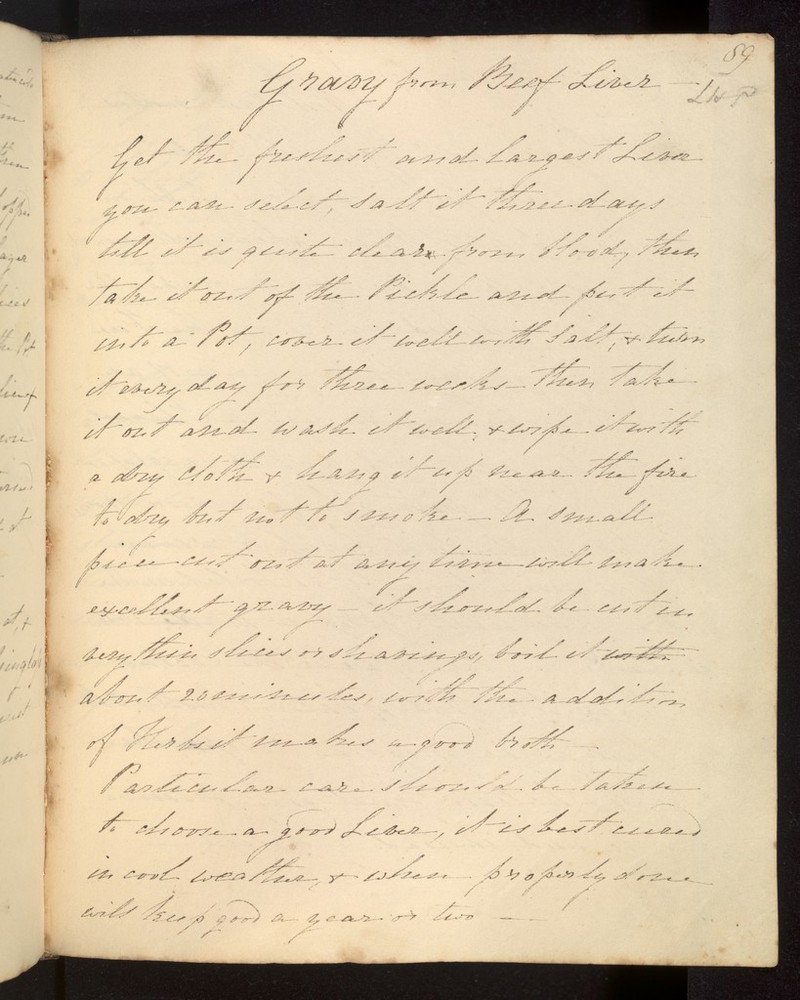 89
Gravy from Beef Liver —
L H P
Get the freshest and largest Liver
you can select, salt it three days
till it is quite clear from blood, then
take it out of the Pickle and put it
into a Pot, cover it well with Salt, & turn
it every day for three weeks – then take
it out and wash it well, & wipe it with
a dry cloth & hang it up near the fire
to dry but not to smoke – A small
piece cut out at any time will make
excellent gravy – it should be cut in
very thin slices or shavings, boil it with
about 20 minutes, with the addition
of Herbs it makes a good broth –
Particular care should be taken
to choose a good Liver, it is best cured
in cool weather, & when properly done
will keep good a year or two —